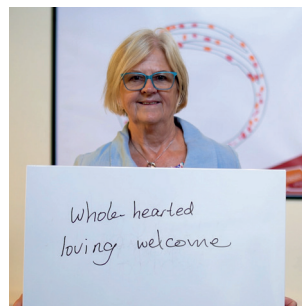 whole-hearted
loving welcome